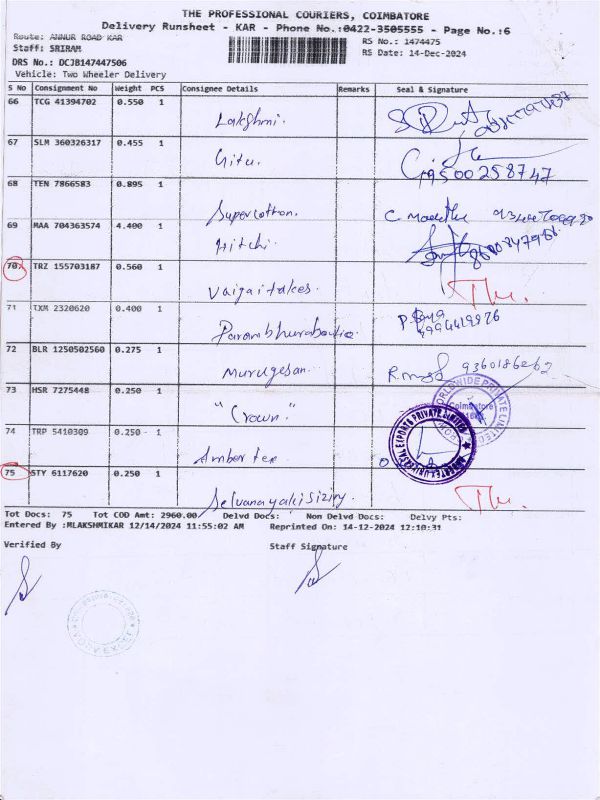 THE PROFESSIONAL COURIERS, COIMBATORE
Delivery Runsheet - KAR - Phone No.:0422-3505555 - Page No.:6
Route: ANNUR ROAD KAR
RS No.: 1474475
Staff: SRIRAM
RS Date: 14-Dec-2024
DRS No.: DCJB147447506
Vehicle: Two Wheeler Delivery
S No Consignment No Weight PCS Consignee Details Remarks Seal & Signature
66 TCG 41394702 0.550 1
Lakshmi.
67 SLM 360326317 0.455 1
Gitu.
9500258747
68 TEN 7866583 0.895 1
Supercotton.
69 MAA 704363574 4.400 1
Hitchi
70 TRZ 155703187 0.560 1
Vaigaitakes.
71 TXM 2320620 0.400 1
4994419976
72 BLR 1250502560 0.275 1
Murugesan.
73 HSR 7275448 0.250 1
"Crown."
74 TRP 5410309 0.250 1
Amber tex
75 STY 6117620 0.250 1
Tot Docs: 75 Tot COD Amt: 2960.00 Delvd Docs: Non Delvd Docs: Delvy Pts:
Entered By :MLAKSHMIKAR 12/14/2024 11:55:02 AM Reprinted On: 14-12-2024 12:10:31
Verified By Staff Signature